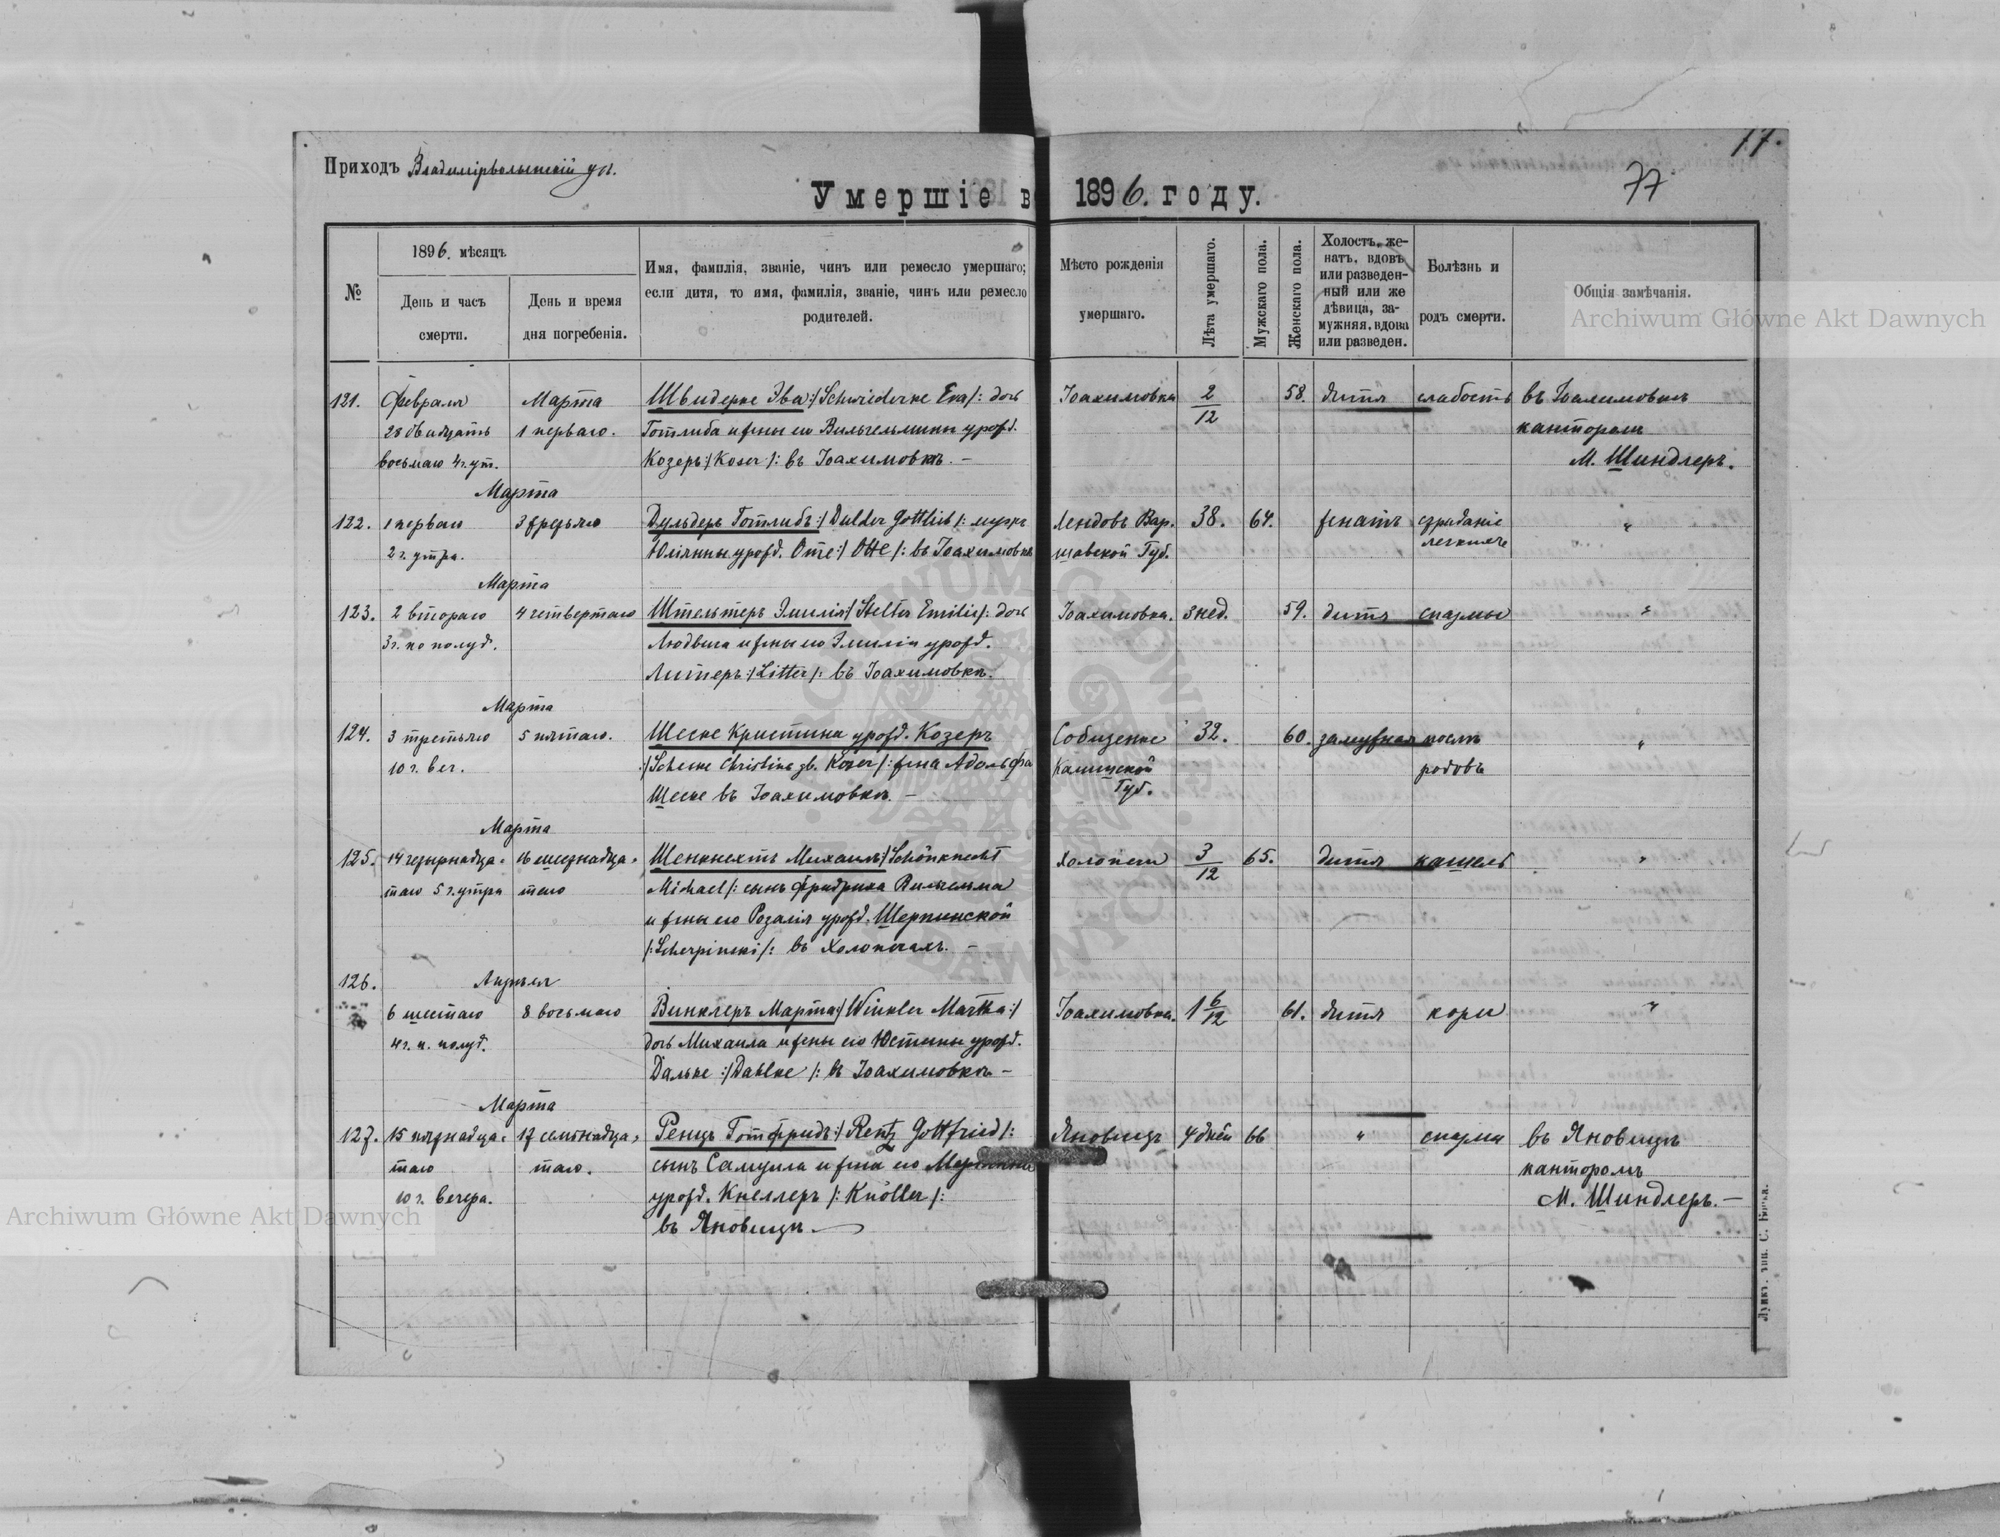 17.
77
Приходъ Владимірволынскій уѣ.
Умершіе въ 1896. году.
№
1896. мѣсяцъ
День и часъ смерти.
День и время дня погребенія.
Имя, фамилія, званіе, чинъ или ремесло умершаго; если дитя, то имя, фамилія, званіе, чинъ или ремесло родителей.
Мѣсто рожденія умершаго.
Лѣта умершаго.
Мужскаго пола.
Женскаго пола.
Холостъ, женатъ, вдовъ или разведенный или же дѣвица, замужняя, вдова или разведен.
Болѣзнь и родъ смерти.
Общія замѣчанія.
Archiwum Główne Akt Dawnych
121. Февраля Марта Швидерке Эва :/Schwiederke Eva/: дочь Іоахимовка 2/12 58. дитя слабость въ Іоахимовкѣ
28 двадцать 1 перваго. Готлиба и жены его Вильгельмины урожд. канторомъ
восьмаго 4 ч. ут. Козеръ :/Koser/: въ Іоахимовкѣ. – М. Шиндлеръ.
Марта
122. 1 перваго 3 третьяго Дульдеръ Готлибъ :/Dulder Gottlieb/: мужъ Лендовъ Вар. 38. 64. женатъ страданіе "
2 ч. утра. Юліанны урожд. Отте :/Otte/: въ Іоахимовкѣ шавской Губ. легкихъ
Марта
123. 2 втораго 4 четвертаго Штельтеръ Эмилія :/Stelter Emilie/: дочь Іоахимовка. 3 нед. 59. дитя спазмы "
3 ч. по полуд. Людвига и жены его Эмиліи урожд.
Литтеръ :/Litter/: въ Іоахимовкѣ.
Марта
124. 3 третьяго 5 пятаго. Шеске Кристина урожд. Козеръ 32. 60. замужняя послѣ "
10 ч. веч. :/Scheske Christine gb. Koser/: жена Адольфа Калишской родовъ
Шеске въ Іоахимовкѣ. – Губ.
Марта
125. 14 четырнадца- 16 шестнадца- Шенкнехтъ Михаилъ :/Schönknecht Холопечи 3/12 65. дитя кашель "
таго 5 ч. утра таго Michael/: сынъ Фридриха Вильгельма
и жены его Розалія урожд. Шерпинской
/:Scherpinski/: въ Холопечахъ. –
126. Апрѣля
6 шестаго 8 восьмаго Винклеръ Марта :/Winkler Martha:/ Іоахимовка. 1 6/12 61. дитя кори "
4 ч. п. полуд. дочь Михаила и жены его Юстины урожд.
Дальке :/Dahlke/: въ Іоахимовкѣ –
Марта
127. 15 пятнадца- 17 семнадца- Ренцъ Готфридъ :/Rentz Gottfried/: Яновицъ 4 дней 66 " спазмы въ Яновицѣ
таго таго. сынъ Самуила и жена его канторомъ
10 ч. вечера. урожд. Кнеллеръ /:Knöller/: М. Шиндлеръ. –
въ Яновицѣ. –
Archiwum Główne Akt Dawnych